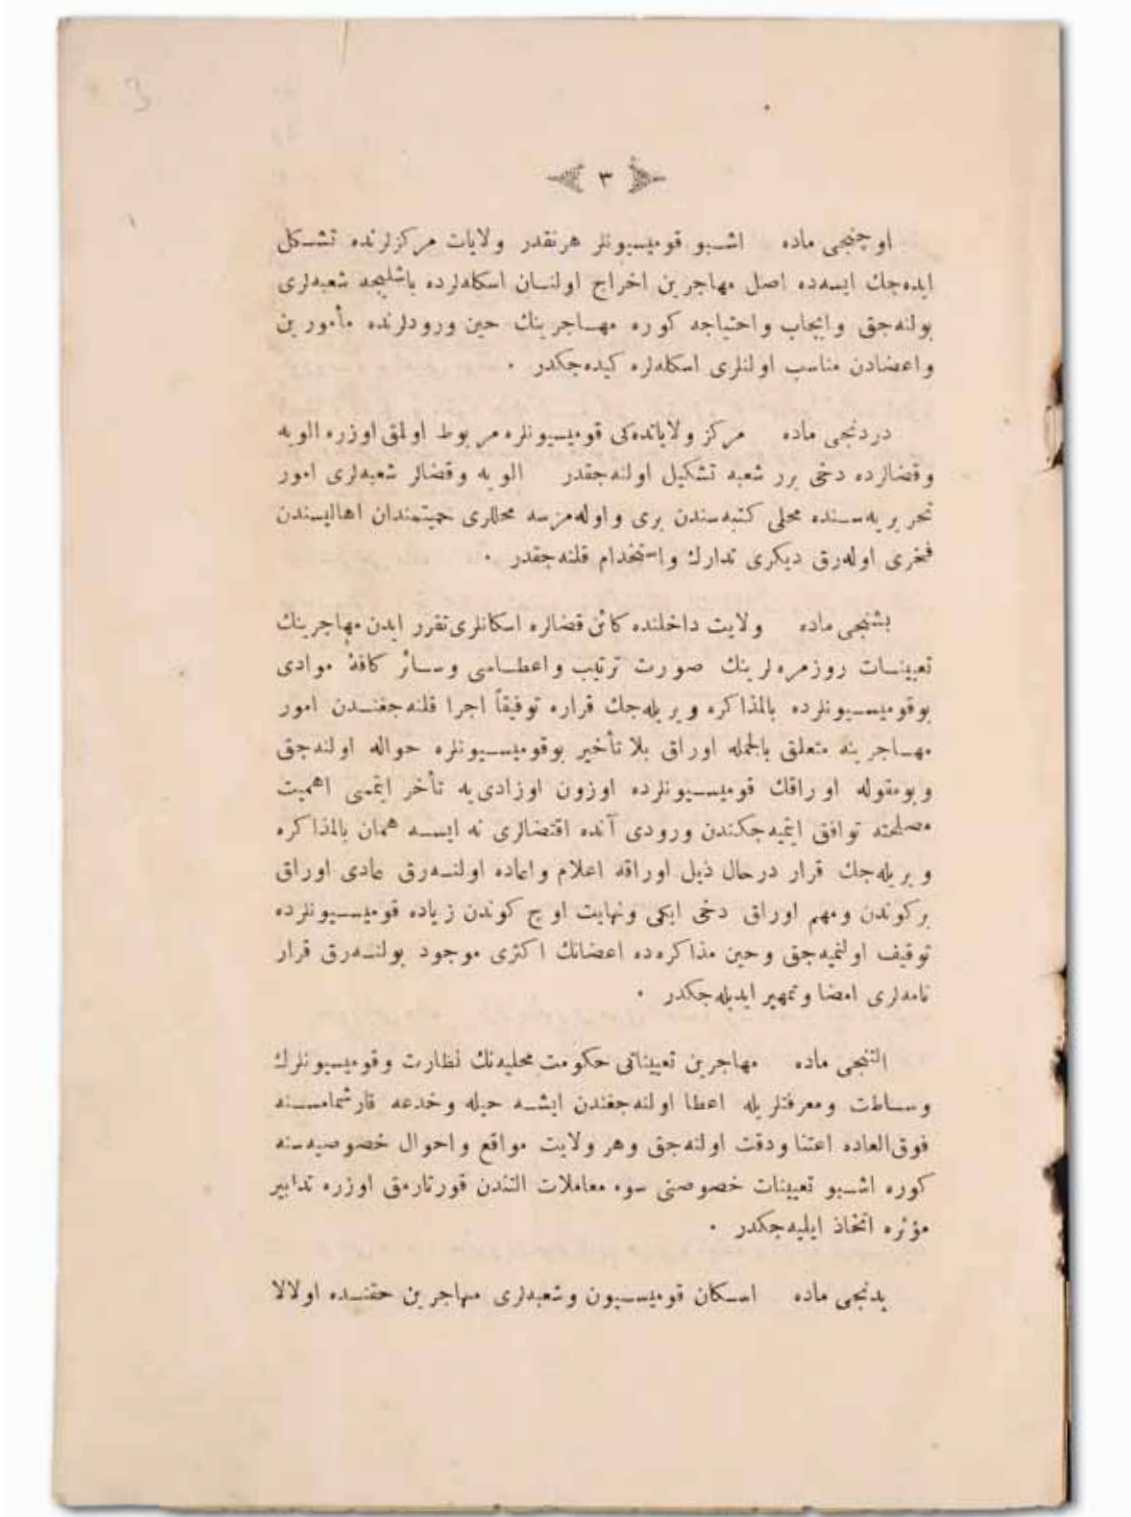 ٣
اوچنجی ماده اشبو قومیسیونلر هرنقدر ولایات مرکزلرنده تشکل
ایده‌جك ایسه‌ده اصل مهاجرین اخراج اولنان اسکله‌لرده باشلیجه شعبه‌لری
بولنه‌جق وایجاب واحتیاجه کوره مهاجرینك حین ورودلرنده مأمورین
واعضادن مناسب اولنلری اسکله‌لره کیده‌جکدر .
دردنجی ماده مرکز ولایاتده‌کی قومیسیونلره مربوط اولمق اوزره الویه
وقضالرده دخی برر شعبه تشکیل اولنه‌جقدر الویه وقضالر شعبه‌لری امور
تحریریه‌سنده محلی کتبه‌سندن بری واوله‌مزسه محللری حمیتمندان اهالیسندن
فخری اوله‌رق دیکری تدارك واستخدام قلنه‌جقدر .
بشنجی ماده ولایت داخلنده کائن قضالره اسکانلری تقرر ایدن مهاجرینك
تعیینات روزمره‌لرینك صورت ترتیب واعطاسی وسائر کافهٔ موادی
بوقومیسیونلرده بالمذاکره ویریله‌جك قراره توفیقاً اجرا قلنه‌جغندن امور
مهاجرینه متعلق بالجمله اوراق بلا تأخیر بوقومیسیونلره حواله اولنه‌جق
وبومقوله اوراقك قومیسیونلرده اوزون اوزادی‌یه تأخر ایتمسی اهمیت
مصلحته توافق ایتمیه‌جکندن ورودی آنده اقتضالری نه ایسه همان بالمذاکره
ویریله‌جك قرار درحال ذیل اوراقه اعلام واعاده اولنه‌رق عادی اوراق
برکوندن ومهم اوراق دخی ایکی ونهایت اوچ کوندن زیاده قومیسیونلرده
توقیف اولنمیه‌جق وحین مذاکره‌ده اعضانك اکثری موجود بولنه‌رق قرار
نامه‌لری امضا وتمهیر ایدیله‌جکدر .
التنجی ماده مهاجرین تعییناتی حکومت محلیه‌نك نظارت وقومیسیونلرك
وساطت ومعرفتلریله اعطا اولنه‌جغندن ایشه حیله وخدعه قارشمامسنه
فوق‌العاده اعتنا ودقت اولنه‌جق وهر ولایت مواقع واحوال خصوصیه‌سنه
کوره اشبو تعیینات خصوصنی سوء معاملات التندن قورتارمق اوزره تدابیر
مؤثره اتخاذ ایلیه‌جکدر .
یدنجی ماده اسکان قومیسیون وشعبه‌لری مهاجرین حقنده اولالا